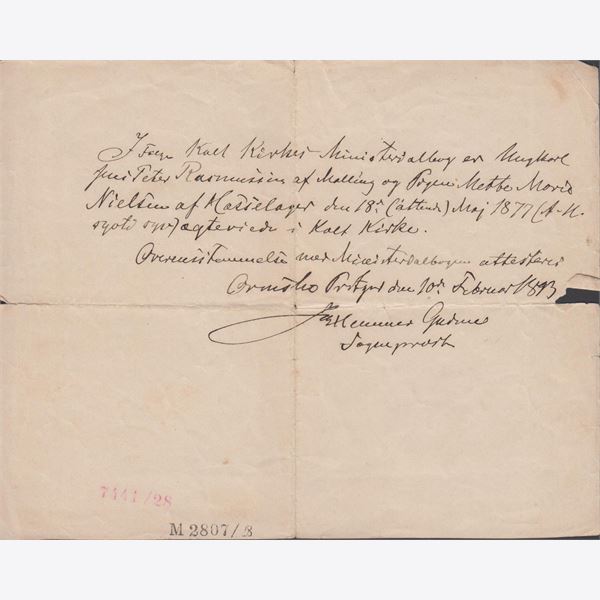 Ifølge Kolt Kirkes Ministerialbog er Ungkarl
Jens Peter Rasmussen af Malling og Pigen Mette Marie
Nielsen af Hasselager den 18de (attende) Maj 1877 (A-H.
syv) ægteviede i Kolt Kirke.
Overensstemmelsen med Ministerialbogen attesteres
Ormslev Præstgd den 10de Februar 1893
Gudme
Sognepræst
7441/28
M 2807/B